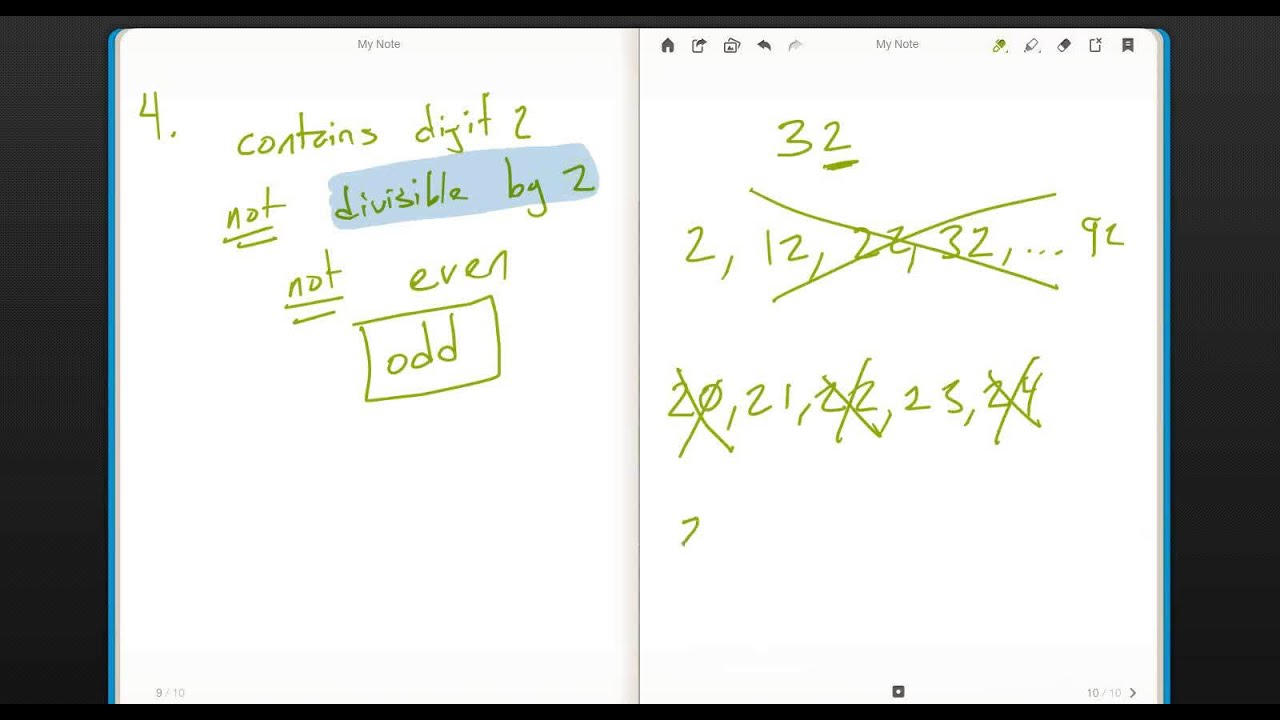 My Note
4.
contains digit 2
not divisible by 2
not even
odd
9 / 10
My Note
32
2, 12, 22, 32, ... 92
20, 21, 22, 23, 24
2
10 / 10